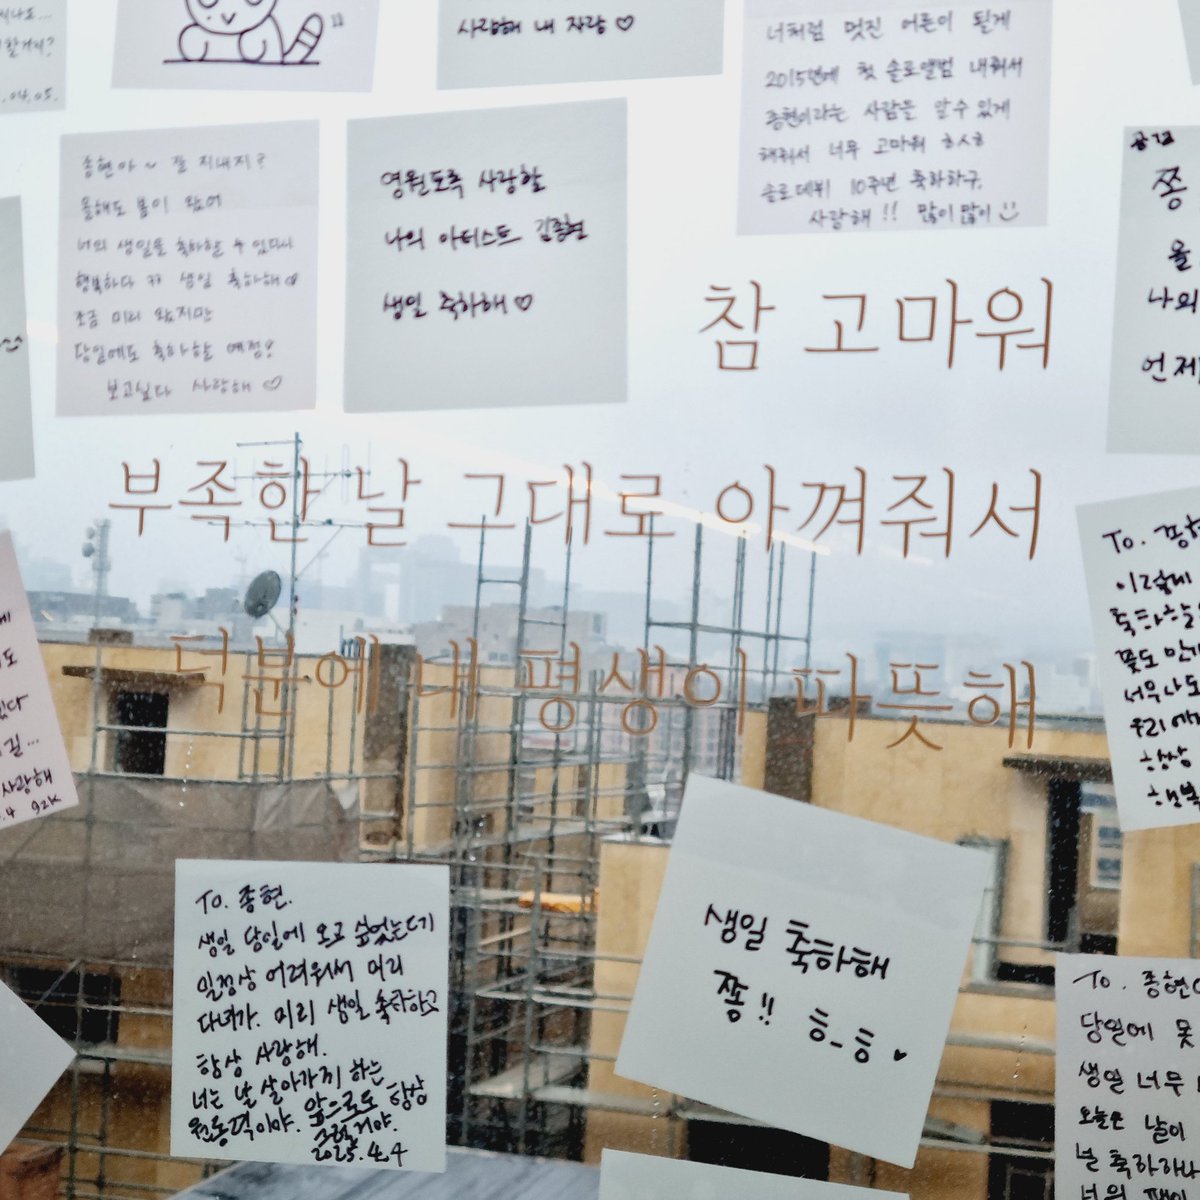 사랑해 내 자랑 ♡
너처럼 멋진 어른이 될게
2015년에 첫 솔로앨범 내줘서
종현이라는 사람을 알 수 있게
해줘서 너무 고마워 ㅎㅅㅎ
솔로데뷔 10주년 축하하구,
사랑해!! 많이 많이
종현아~ 잘 지내지?
올해도 봄이 왔어
너의 생일을 축하할 수 있다니
행복하다 ㅋㅋ 생일 축하해
조금 미리 왔지만
당일에도 축하할 예정!
보고싶다 사랑해 ♡
영원토록 사랑할
나의 아티스트 김종현
생일 축하해 ♡
쫑
올
나의
언제
참 고마워
부족한 날 그대로 아껴줘서
덕분에 내 평생이 따뜻해
To. 쫑
이렇게
서우나도
항상
행복
사랑해
To. 종현.
생일 당일에 오고 싶었는데
일정상 어려워서 미리
다녀가. 미리 생일 축하하고
항상 사랑해.
너는 날 살아가게 하는
원동력이야. 앞으로도 항상
그럴거야.
2025.4.4
생일 축하해
쫑!! ㅎ_ㅎ
To. 종현
당일에 못
생일 너무
오늘은 날이
널 축하하
너의